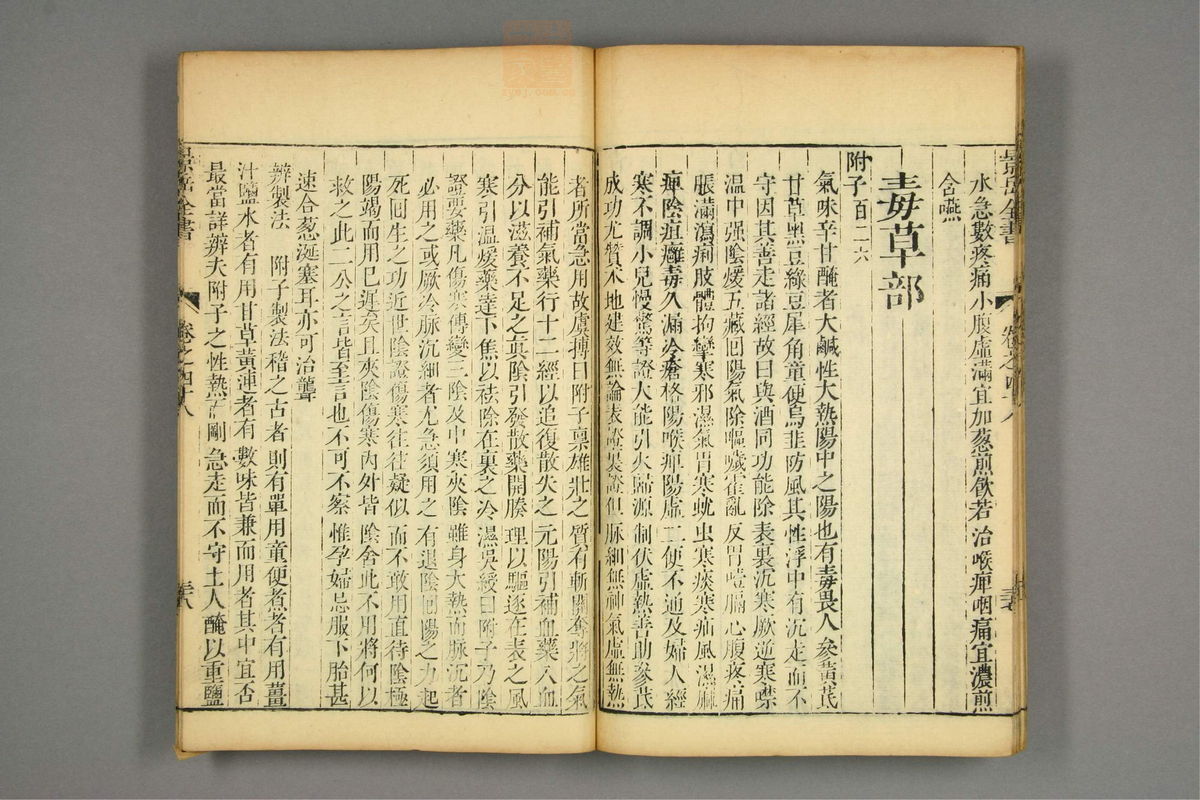 景岳全書 卷之四十八
水急數疼痛小腹虛滿宜加葱煎飲若治喉痺咽痛宜濃煎
含嚥
毒草部
附子百二六
氣味辛甘醃者大鹹性大熱陽中之陽也有毒畏人參黃芪
甘草黑豆綠豆犀角童便烏韭防風其性浮中有沉走而不
守因其善走諸經故曰與酒同功能除表裏沉寒厥逆寒噤
温中强陰煖五藏回陽氣除嘔噦霍亂反胃噎膈心腹疼痛
脹滿瀉痢肢體拘攣寒邪濕氣胃寒蚘虫寒痰寒疝風濕麻
痺陰疽癰毒久漏冷瘡格陽喉痺陽虛二便不通及婦人經
寒不調小兒慢驚等證大能引火歸源制伏虛熱善助參芪
成功尤贊朮地建效無論表證裏證但脉細無神氣虛無熱
者所當急用故虞摶曰附子稟雄壯之質有斬關奪將之氣
能引補氣藥行十二經以追復散失之元陽引補血藥入血
分以滋養不足之真陰引發散藥開腠理以驅逐在表之風
寒引温煖藥達下焦以祛除在裏之冷濕吳綬曰附子乃陰
證要藥凡傷寒傳變三陰及中寒夾陰雖身大熱而脉沉者
必用之或厥冷脉沉細者尤急須用之有退陰回陽之力起
死回生之功近世陰證傷寒往往疑似而不敢用直待陰極
陽竭而用已遲矣且夾陰傷寒內外皆陰舍此不用將何以
救之此二公之言皆至言也不可不察惟孕婦忌服下胎甚
速合葱涎塞耳亦可治聾
辨製法 附子製法稽之古者則有單用童便煮者有用薑
汁鹽水者有用甘草黃連者有數味皆兼而用者其中宜否
最當詳辨夫附子之性熱而剛急走而不守土人醃以重鹽
景岳全書 卷之四十八